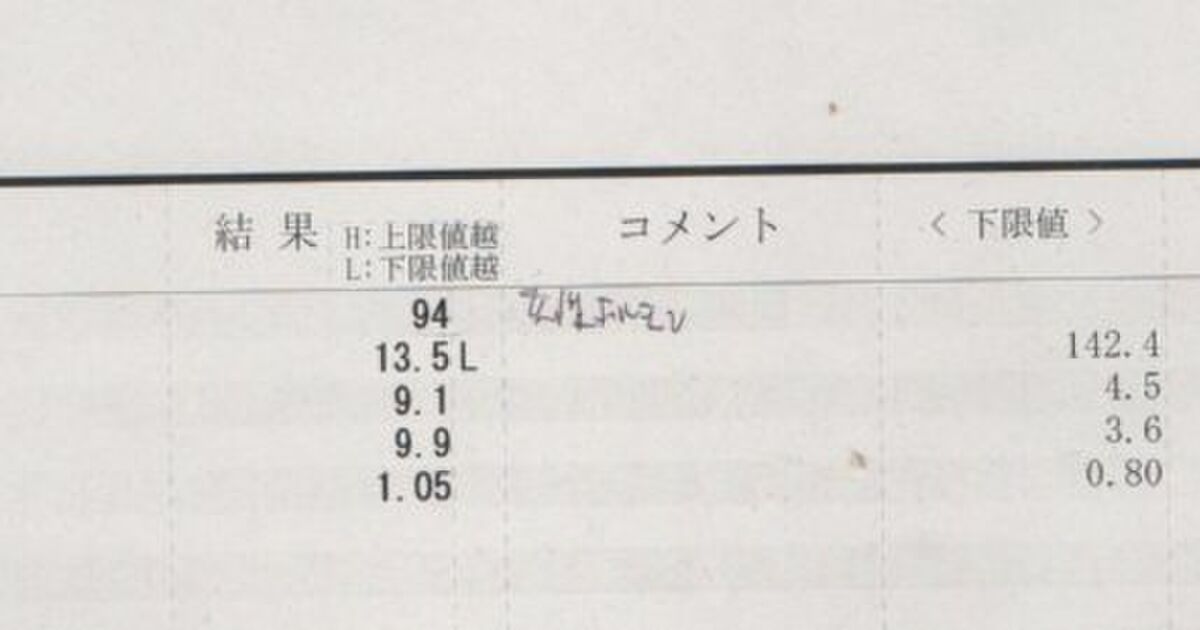 結 果 H:上限値越 コメント < 下限値 >
L:下限値越
94 女性ホルモン
13.5 L 142.4
9.1 4.5
9.9 3.6
1.05 0.80